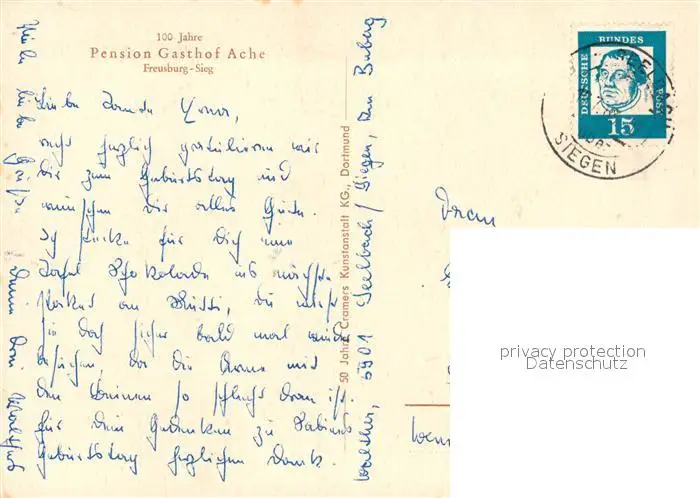 100 Jahre
Pension Gasthof Ache
Freusburg-Sieg
Liebe Tante Erna,
recht herzlich gratulieren wir
Dir zum Geburtstag und
wünschen Dir alles Gute.
Ich packe für Dich eine
Tafel Schokolade ins nächste
an Mutti, Du
Sie doch sicher bald mal wieder
besuchen, da die Arme mit
den Beinen so schlecht dran ist.
Für Dein Gedenken zu Sabines
Geburtstag herzlichen Dank.
Viele liebe Grüße
Deine
50 Jahre Cramers Kunstanstalt KG., Dortmund
Walther, 5901 Seelbach / Siegen, Am
DEUTSCHE BUNDESPOST
15
SIEGEN
Frau
privacy protection
Datenschutz